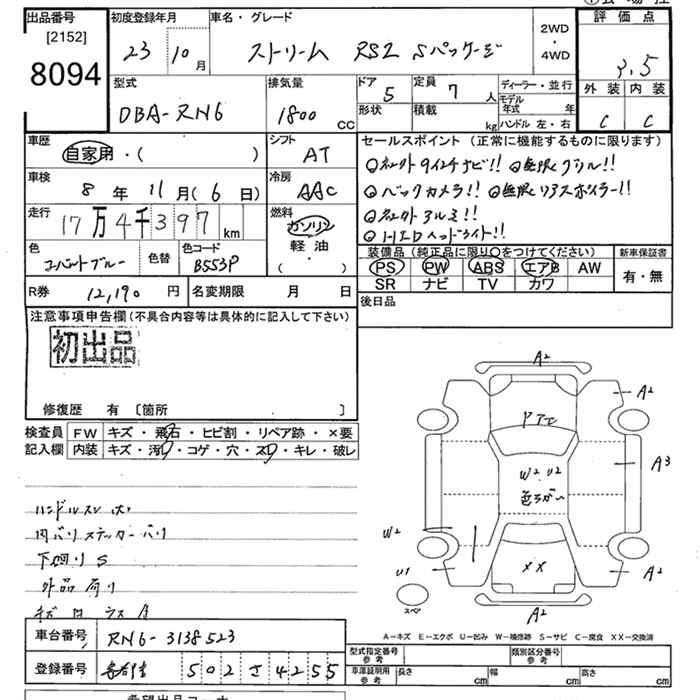 出品番号
[2152]
8094
初度登録年月
23 10月
車名・グレード
ストリーム RSZ Sパッケージ
2WD
・
4WD
評価点
3.5
型式
DBA-RN6
排気量
1800 CC
ドア 5
形状
定員 7 人
積載 kg
ディーラー・並行
モデル年式 年
ハンドル 左・右
外装 内装
C C
車歴
自家用・( )
シフト
AT
車検
8年 11月(6日)
冷房
AAC
走行
17万4千397km
燃料
ガソリン
軽油
( )
色
コバルトブルー
色替
色コード
B553P
R券 12,190円
名変期限 月 日
セールスポイント(正常に機能するものに限ります)
◎社外9インチナビ!! ◎無限グリル!!
◎バックカメラ!! ◎無限リアスポイラー!!
◎社外アルミ!!
◎HIDヘッドライト!!
装備品(純正品に限り○をつけてください)
PS PW ABS エアB AW
SR ナビ TV カワ
新車保証書
有・無
後日品
注意事項申告欄(不具合内容等は具体的に記入して下さい)
初出品
修復歴 有 〔箇所 〕
検査員記入欄
FW キズ・飛石・ヒビ割・リペア跡・×要
内装 キズ・汚・コゲ・穴・スレ・キレ・破レ
ハンドルスレ
内バリステッカーバリ
下廻りS
外品有り
キズ ガラスA
車台番号 RN6-3138523
登録番号 502さ4255
A2
A2
ドアE
A3
W2 U2
色ちがい
W2
U1
XX
A2
スペア
A2
A-キズ E-エクボ U-凹み W-補修跡 S-サビ C-腐食 XX-交換済
型式指定番号 参考
類別区分番号 参考
車庫証明用 参考 長さ 幅 高さ
希望出品コーナー